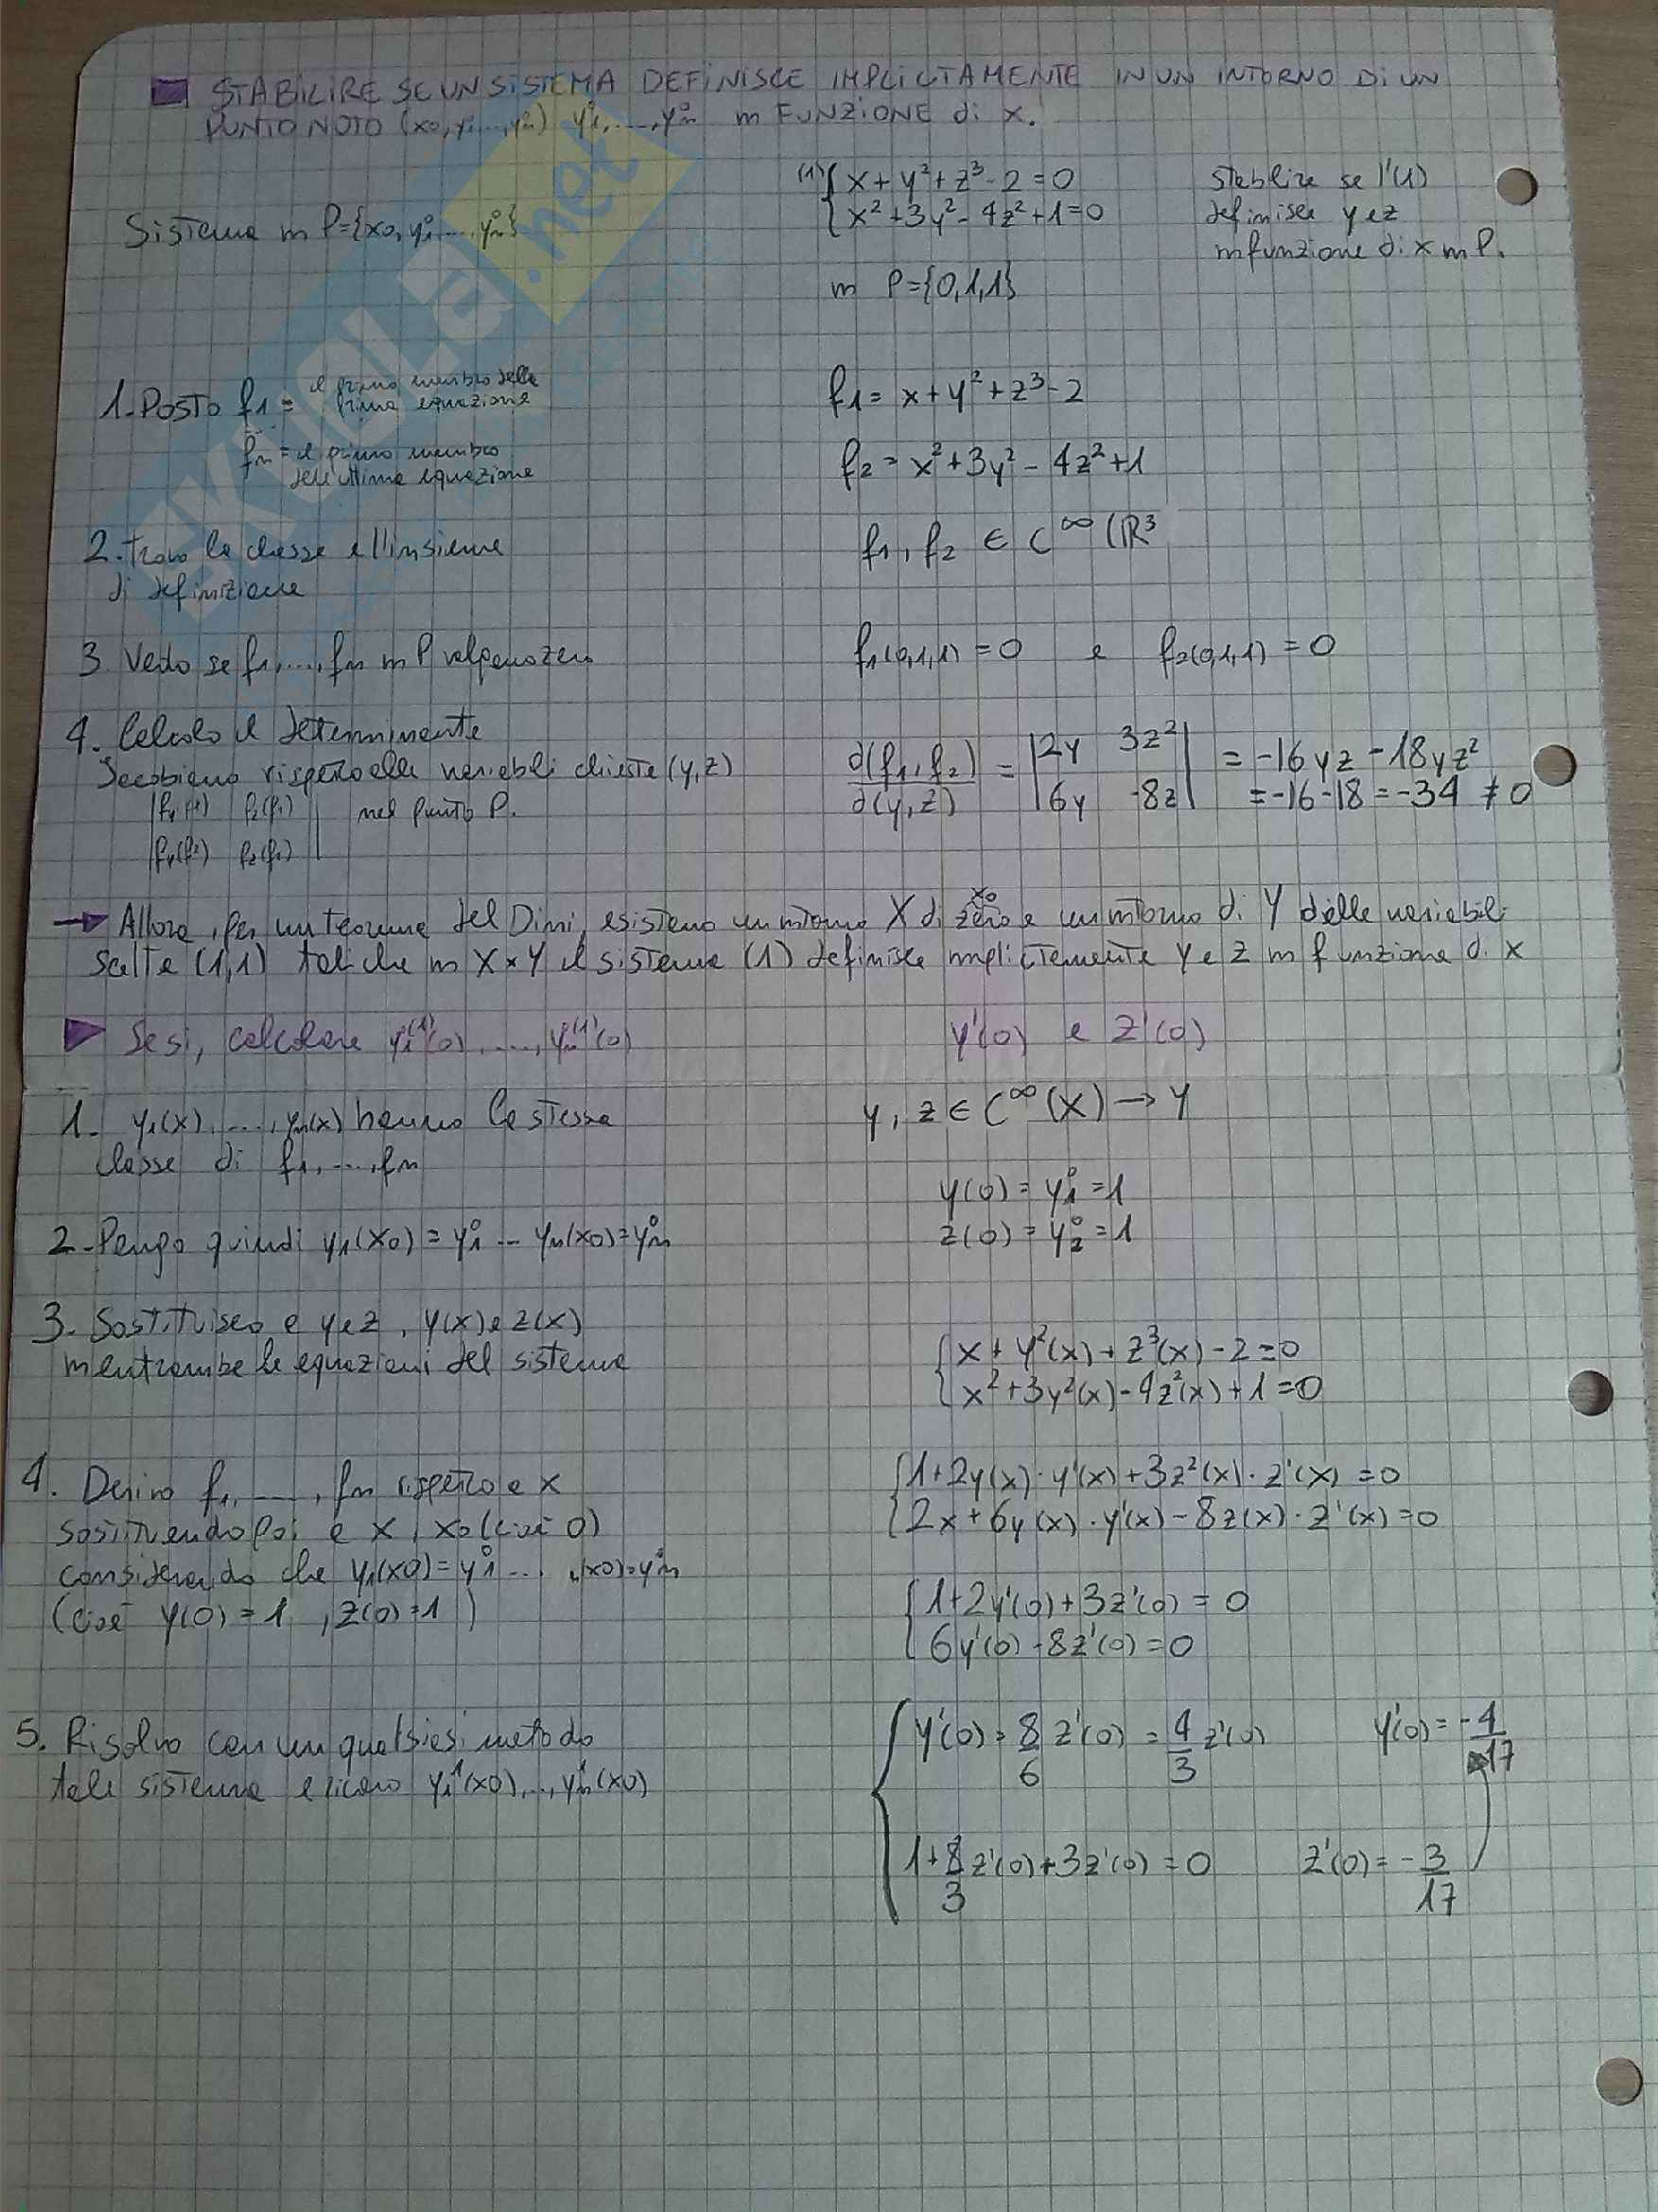 STABILIRE SE UN SISTEMA DEFINISCE IMPLICITAMENTE IN UN INTORNO DI UN
PUNTO NOTO (x0, y°1,...,y°n) y°1,....,y°n in FUNZIONE di x.
Sistema in P={x0, y°1,...,y°n}
(1) { x + y² + z³ - 2 = 0
{ x² + 3y² - 4z² + 1 = 0
in P={0,1,1}
stabilire se l'(1)
definisce y e z
in funzione di x in P.
1. POSTO f1 = il primo membro della
prima equazione
fn = il primo membro
dell'ultima equazione
f1 = x + y² + z³ - 2
f2 = x² + 3y² - 4z² + 1
2. Trovo la classe e l'insieme
di definizione
f1, f2 ∈ C^∞ (R³
3. Vedo se f1,...,fn in P valgono zero
f1(0,1,1) = 0 e f2(0,1,1) = 0
4. Calcolo il determinante
Jacobiano rispetto alle variabili chieste (y,z)
nel punto P.
d(f1,f2)/d(y,z) = |2y 3z²| = -16yz - 18yz²
|6y -8z| = -16-18 = -34 ≠ 0
→ Allora, per un teorema del Dini, esistono un intorno X di zero x0 e un intorno di Y delle variabili
scelte (1,1) tali che in X×Y il sistema (1) definisce implicitamente y e z in funzione di x
► Se si, calcolare y1^(1)(0),....,yn^(1)(0)
y'(0) e z'(0)
1. y1(x),....,yn(x) hanno la stessa
classe di f1,....,fn
y, z ∈ C^∞ (X) → Y
2. Pongo quindi y1(x0) = y°1 ... yn(x0) = y°n
y(0) = y°1 = 1
z(0) = y°2 = 1
3. Sostituisco a y e z, y(x) e z(x)
in entrambe le equazioni del sistema
{ x + y²(x) + z³(x) - 2 = 0
{ x² + 3y²(x) - 4z²(x) + 1 = 0
4. Derivo f1,....,fn rispetto a x
sostituendo poi a x, x0 (cioè 0)
considerando che y1(x0) = y°1 ... (x0) = y°n
(cioè y(0) = 1, z(0) = 1)
{ 1 + 2y(x)·y'(x) + 3z²(x)·z'(x) = 0
{ 2x + 6y(x)·y'(x) - 8z(x)·z'(x) = 0
{ 1 + 2y'(0) + 3z'(0) = 0
{ 6y'(0) - 8z'(0) = 0
5. Risolvo con un qualsiasi metodo
tale sistema e ricavo y1'(x0),...,yn'(x0)
{ y'(0) = 8/6 z'(0) = 4/3 z'(0) y'(0) = -4/17
1 + 8/3 z'(0) + 3z'(0) = 0 z'(0) = -3/17